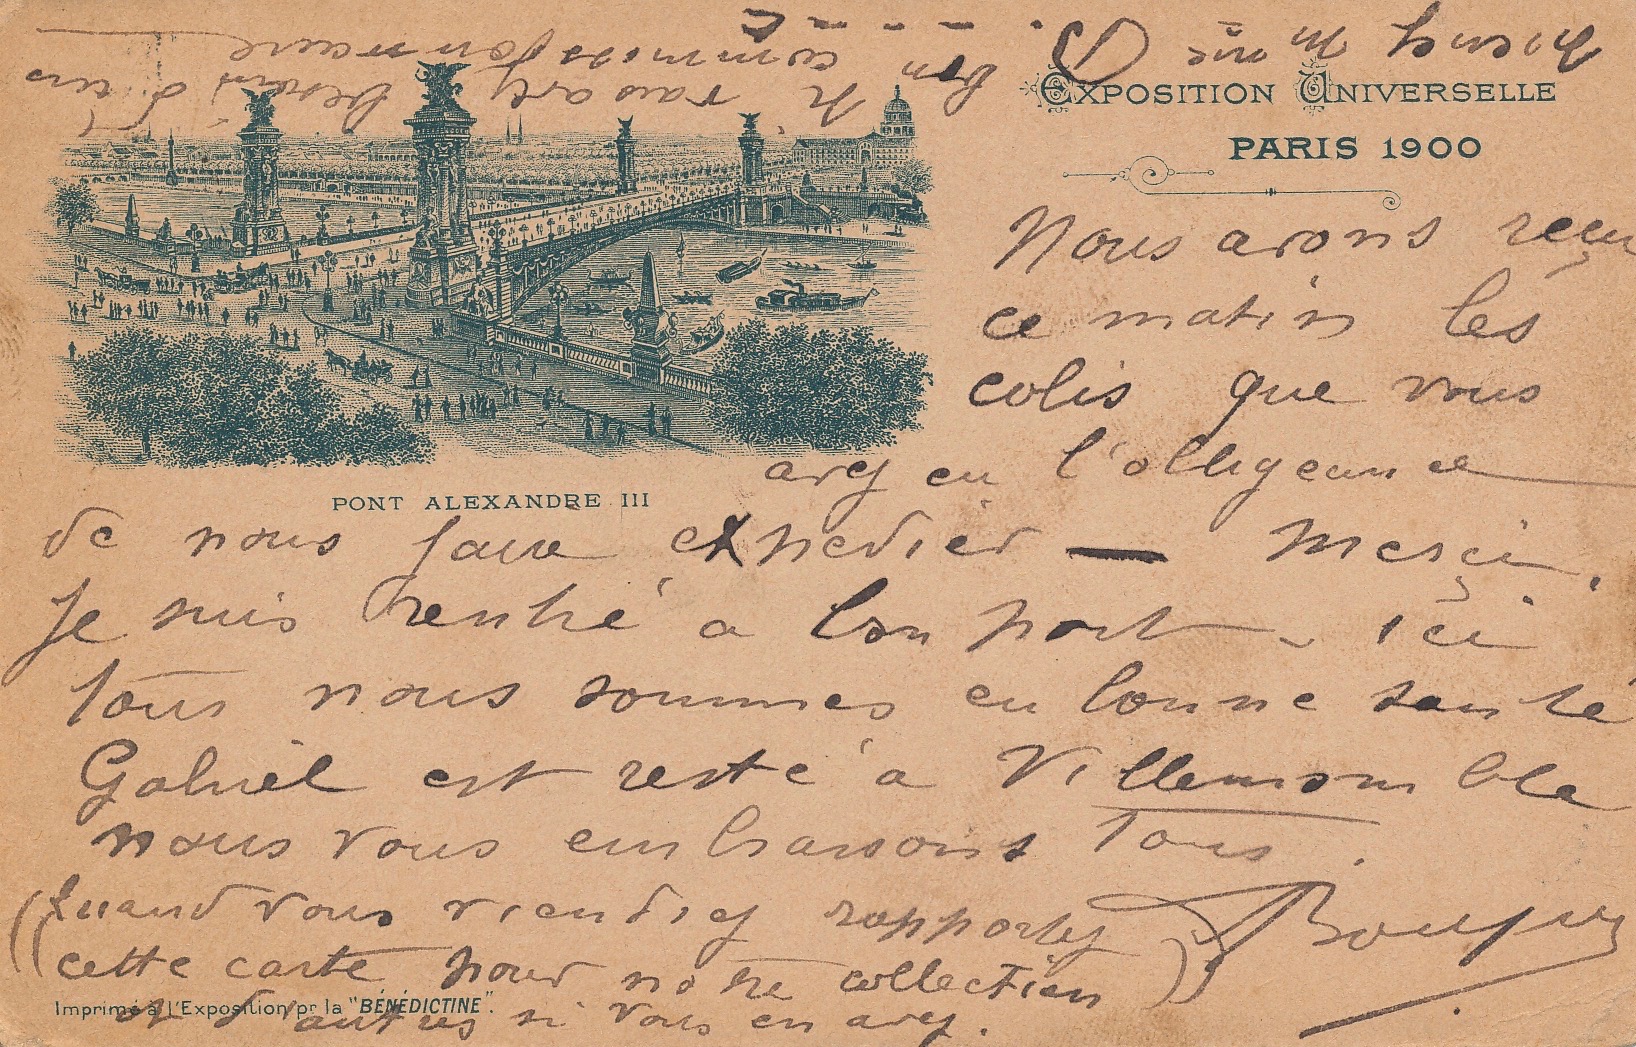 EXPOSITION UNIVERSELLE
PARIS 1900
Nous avons reçu
ce matin les
colis que vous
avez eu l'obligeance
PONT ALEXANDRE III
de nous faire expédier — Merçi.
Je suis rentré à bon port - ici
tous nous sommes en bonne santé
Gabriel est resté à Villemomble
nous vous embrassons tous.
(Quand vous viendrez rapportez
cette carte pour notre collection)
et d'autres si vous en avez.
Imprimé à l'Exposition pr la "BÉNÉDICTINE".
prenez Mme
bon commissionnaire
si vous avez besoin d'un